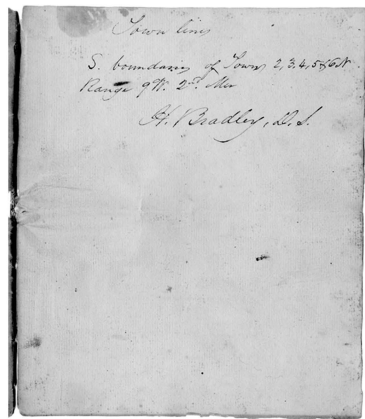 Town lines
S. boundaries of Towns 2, 3, 4, 5 & 6 N
Range 9 W. 2nd. Mer
H. Bradley, D. S.